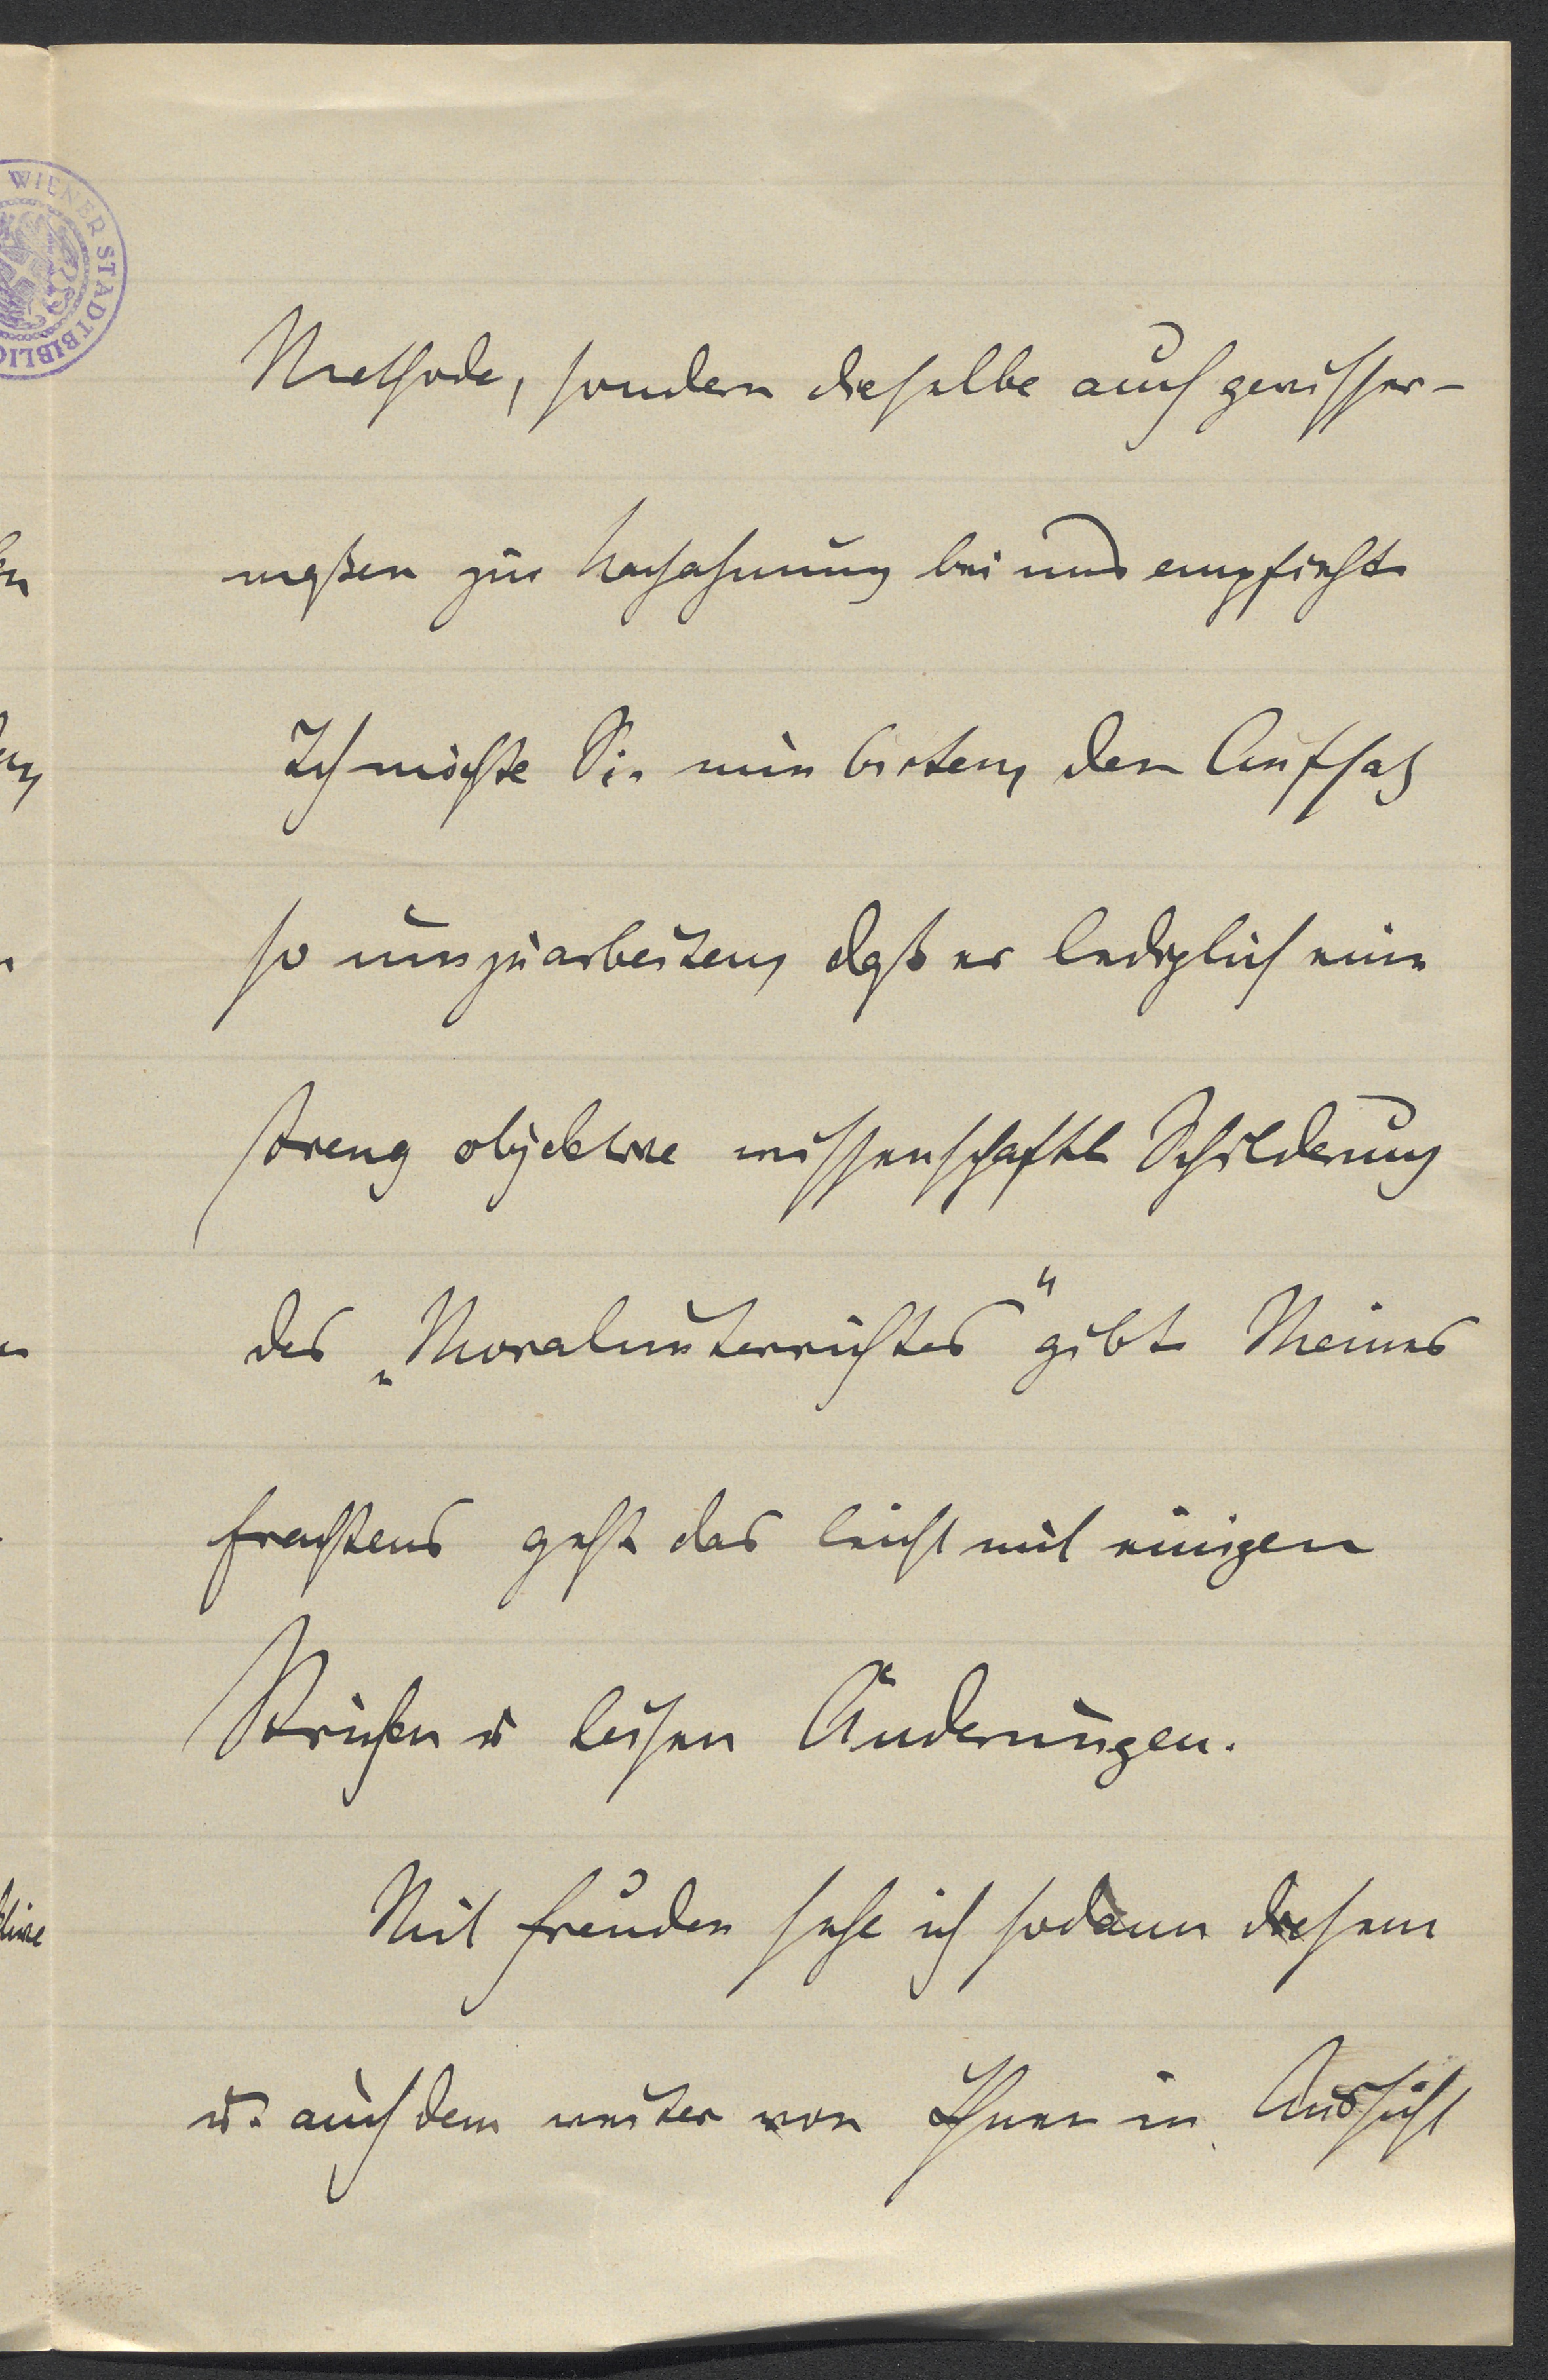 WIENER STADTBIBLIO
Methode, sondern dieselbe auch gewisser-
maßen zur Nachahmung bei uns empfiehlt
Ich möchte Sie nun bitten, den Aufsatz
so umzuarbeiten, daß er lediglich eine
streng objektive wissenschaftl Schilderung
des „Moralunterrichtes“ gibt Meines
Erachtens geht das leicht mit einigen
Strichen u leisen Änderungen.
Mit Freuden sehe ich sodann diesem
u. auch dem weiter von Ihnen in Aussicht